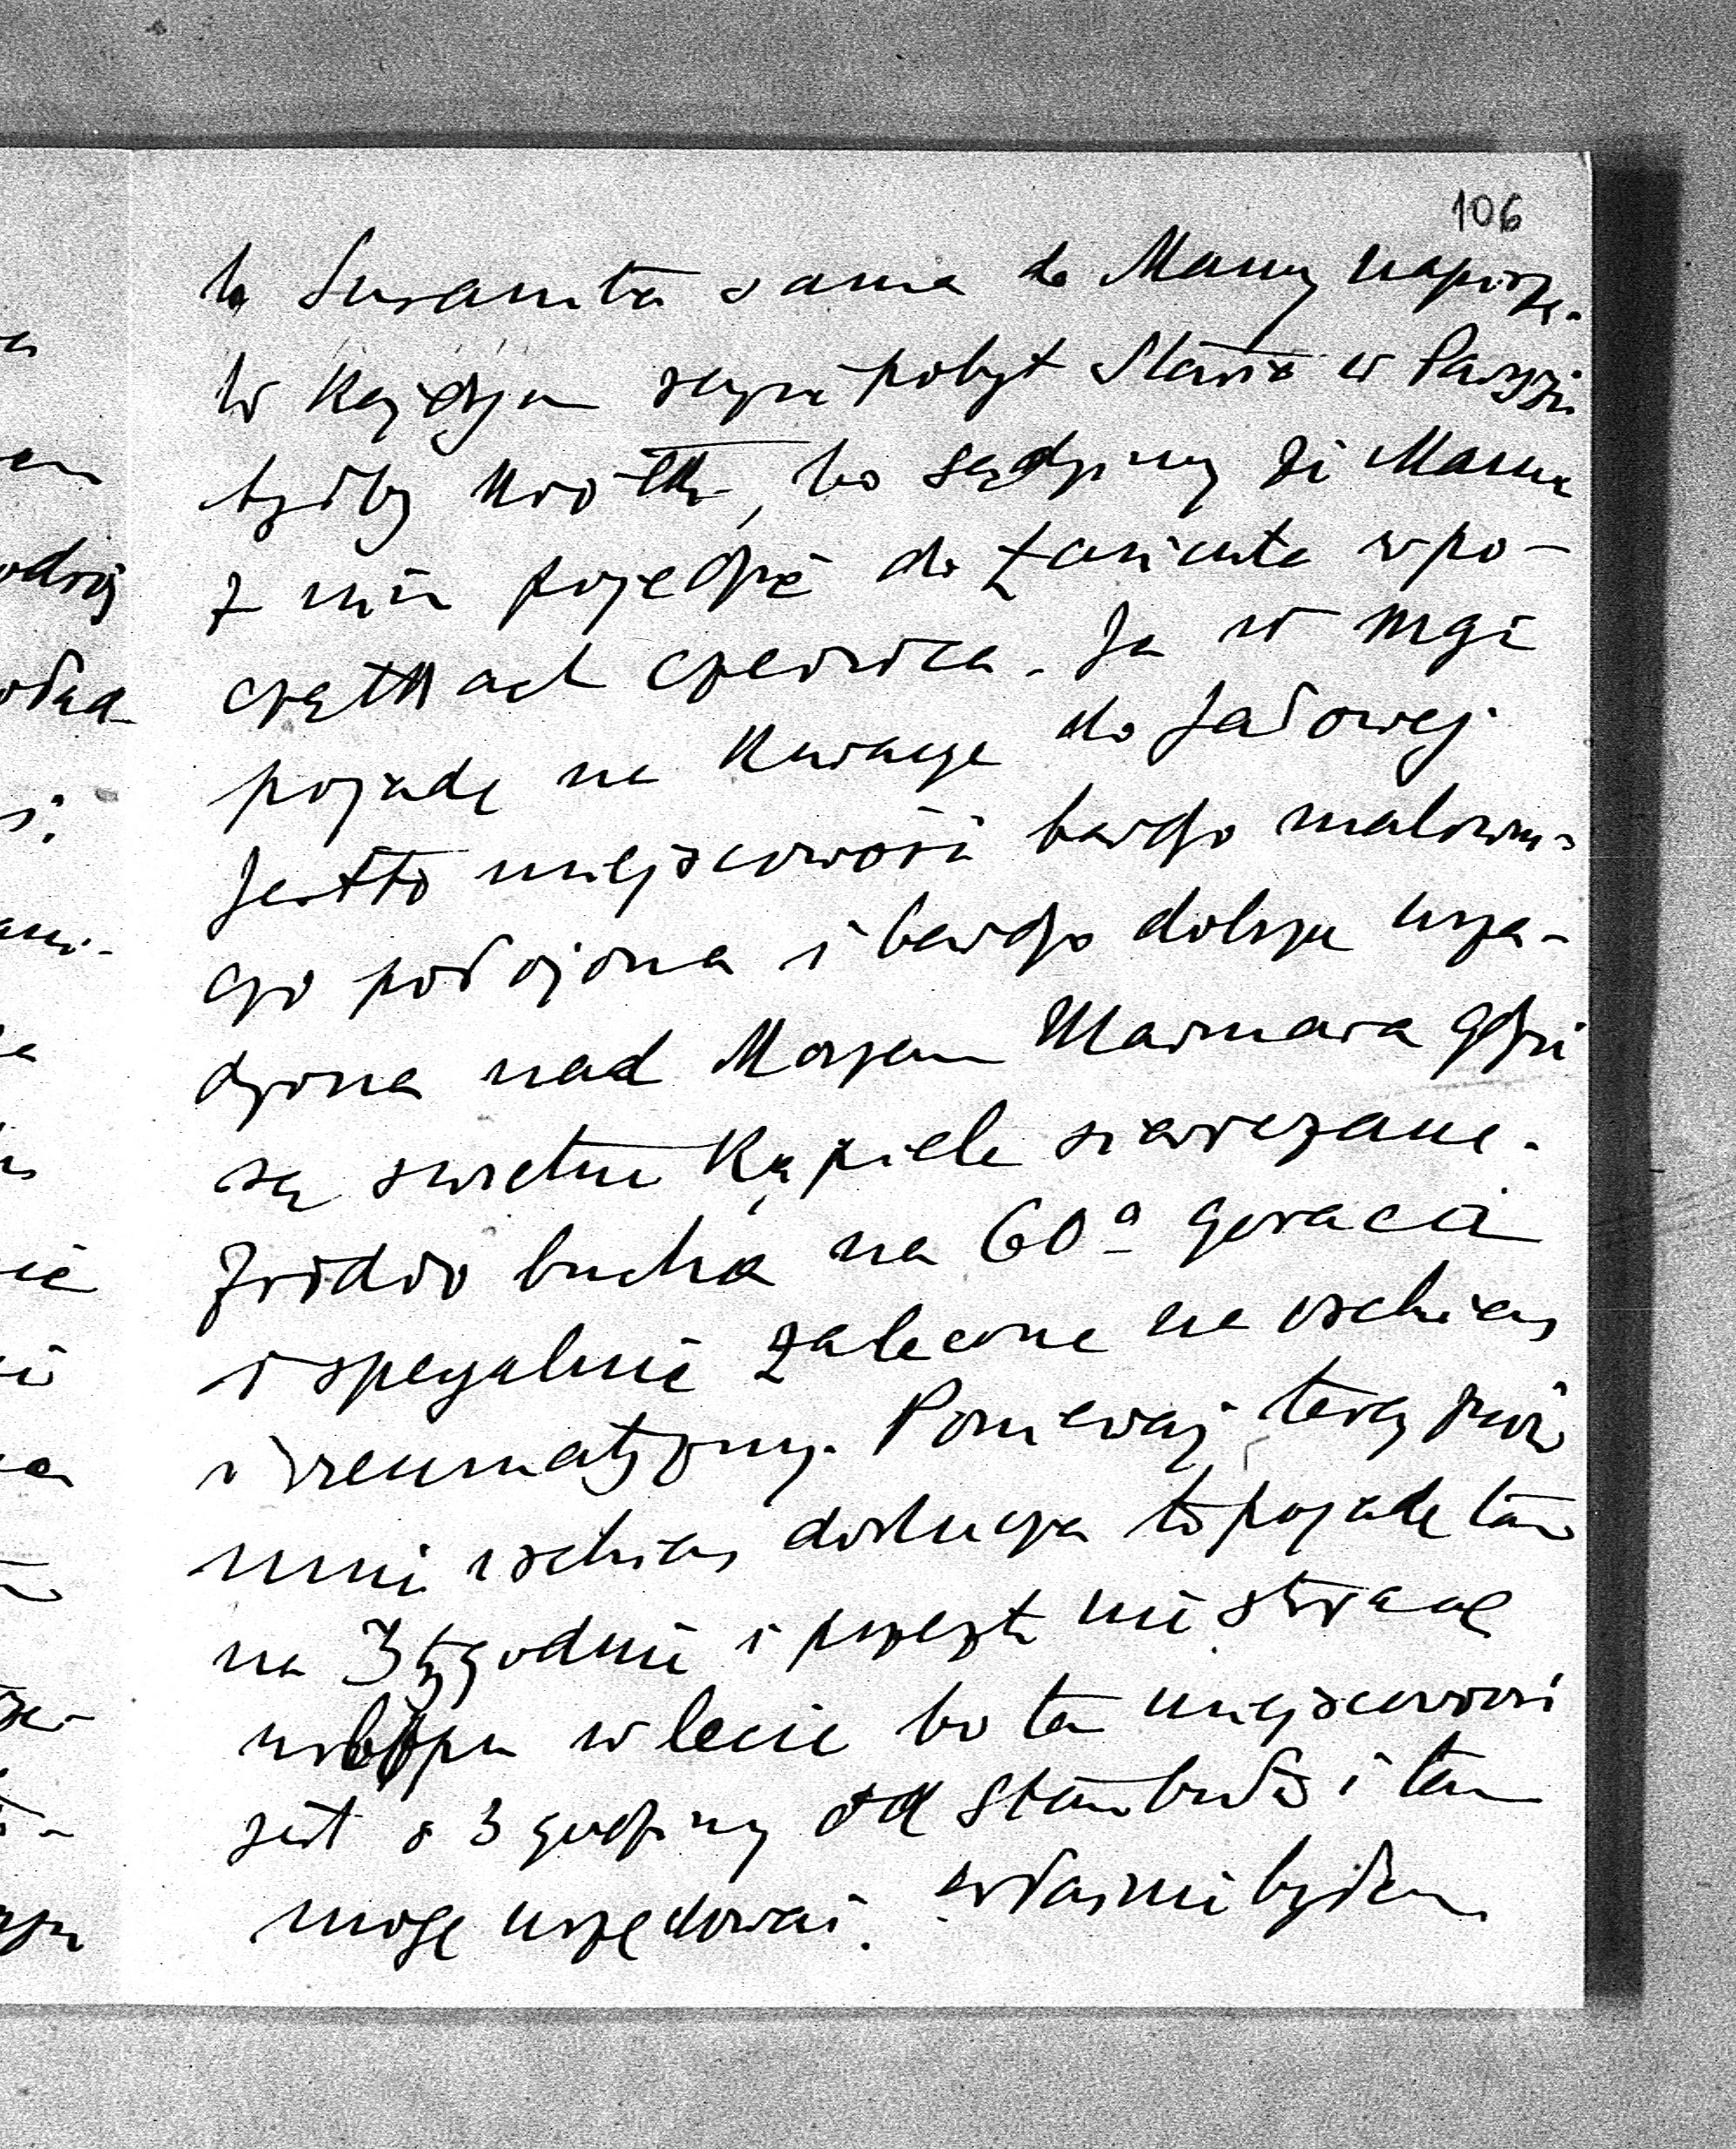 106
to Susanita sama do Mamy napisze.
W każdym razie pobyt Stasia w Paryżu
byłby krótki, bo sądzimy że Mama
z nim pojedzie do Łańcuta w po-
czątkach czerwca. Ja w maju
pojadę na kurację do Jałowej
Jestto miejscowość bardzo malowni-
czo położona i bardzo dobrze urzą-
dzona nad Morzem Marmara gdzie
są świetne kąpiele siarczane.
Źródło bucha na 60° gorąca
i specyalnie zalecone na ischias
i reumatyzmy. Ponieważ teraz
mnie ischias dokucza to pojadę tam
na 3 tygodnie i przez to nie stracę
urlopu w lecie bo ta miejscowość
jest o 3 godziny od Stambułu i tam
mogę urzędować. właśnie byłem